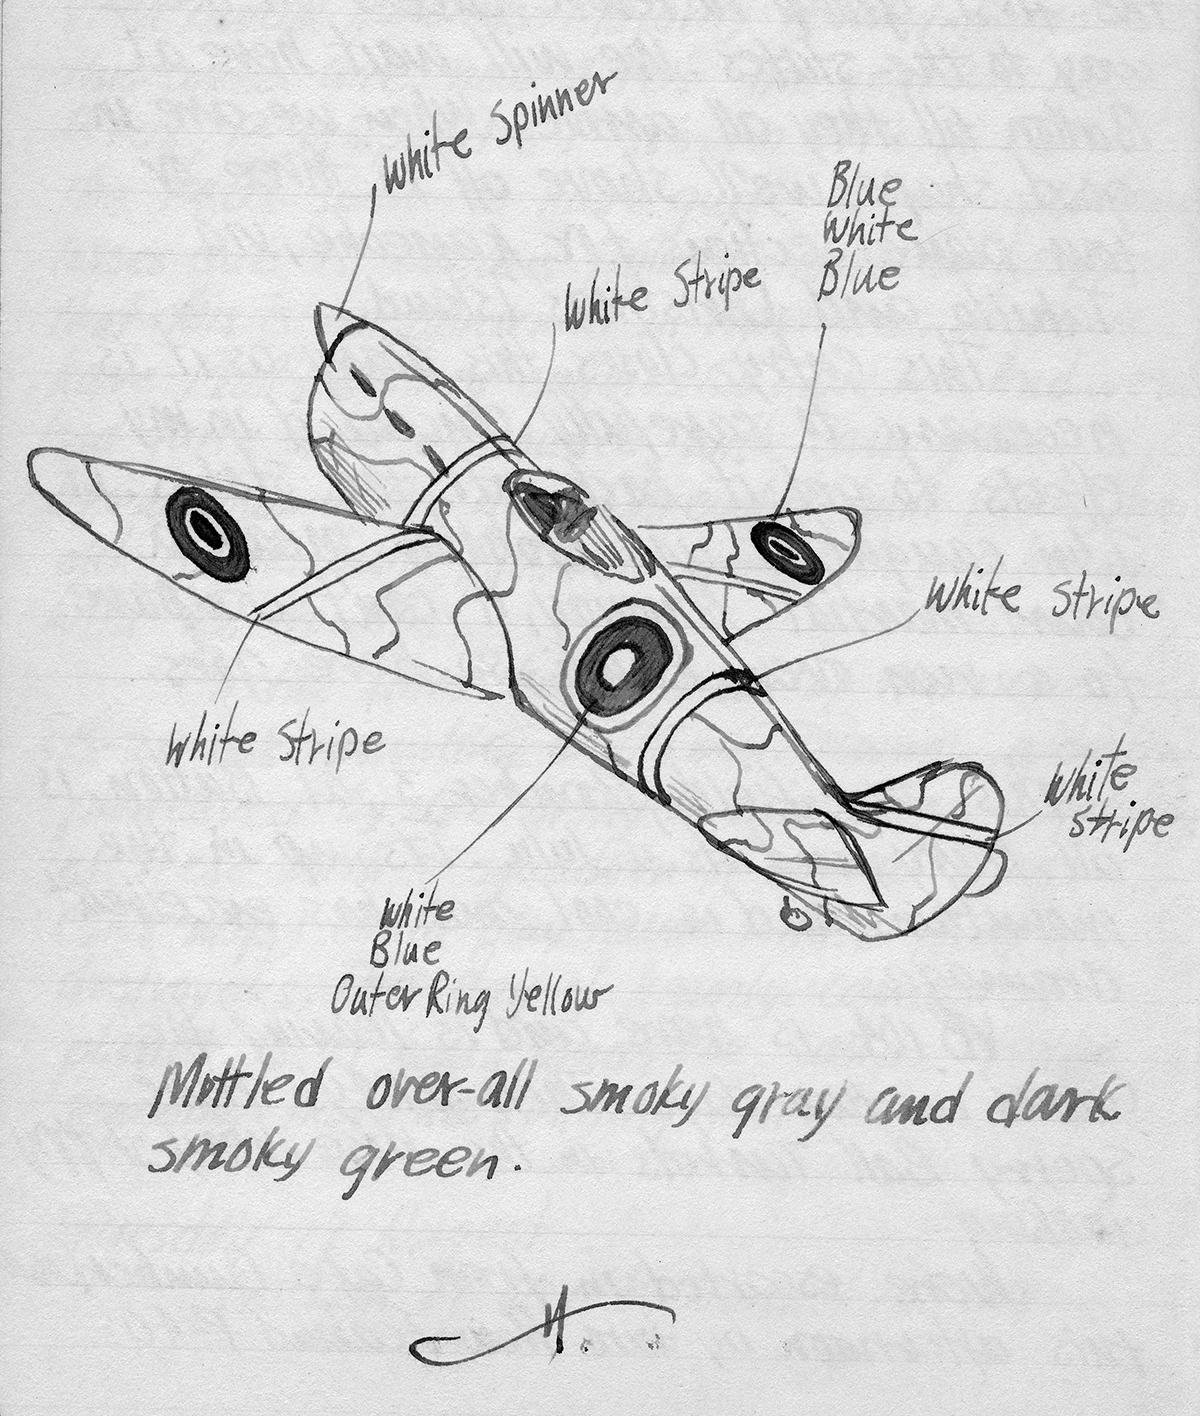 White Spinner
Blue
White
Blue
White Stripe
White Stripe
White Stripe
White
Stripe
White
Blue
Outer Ring Yellow
Mottled over-all smoky gray and dark
smoky green.